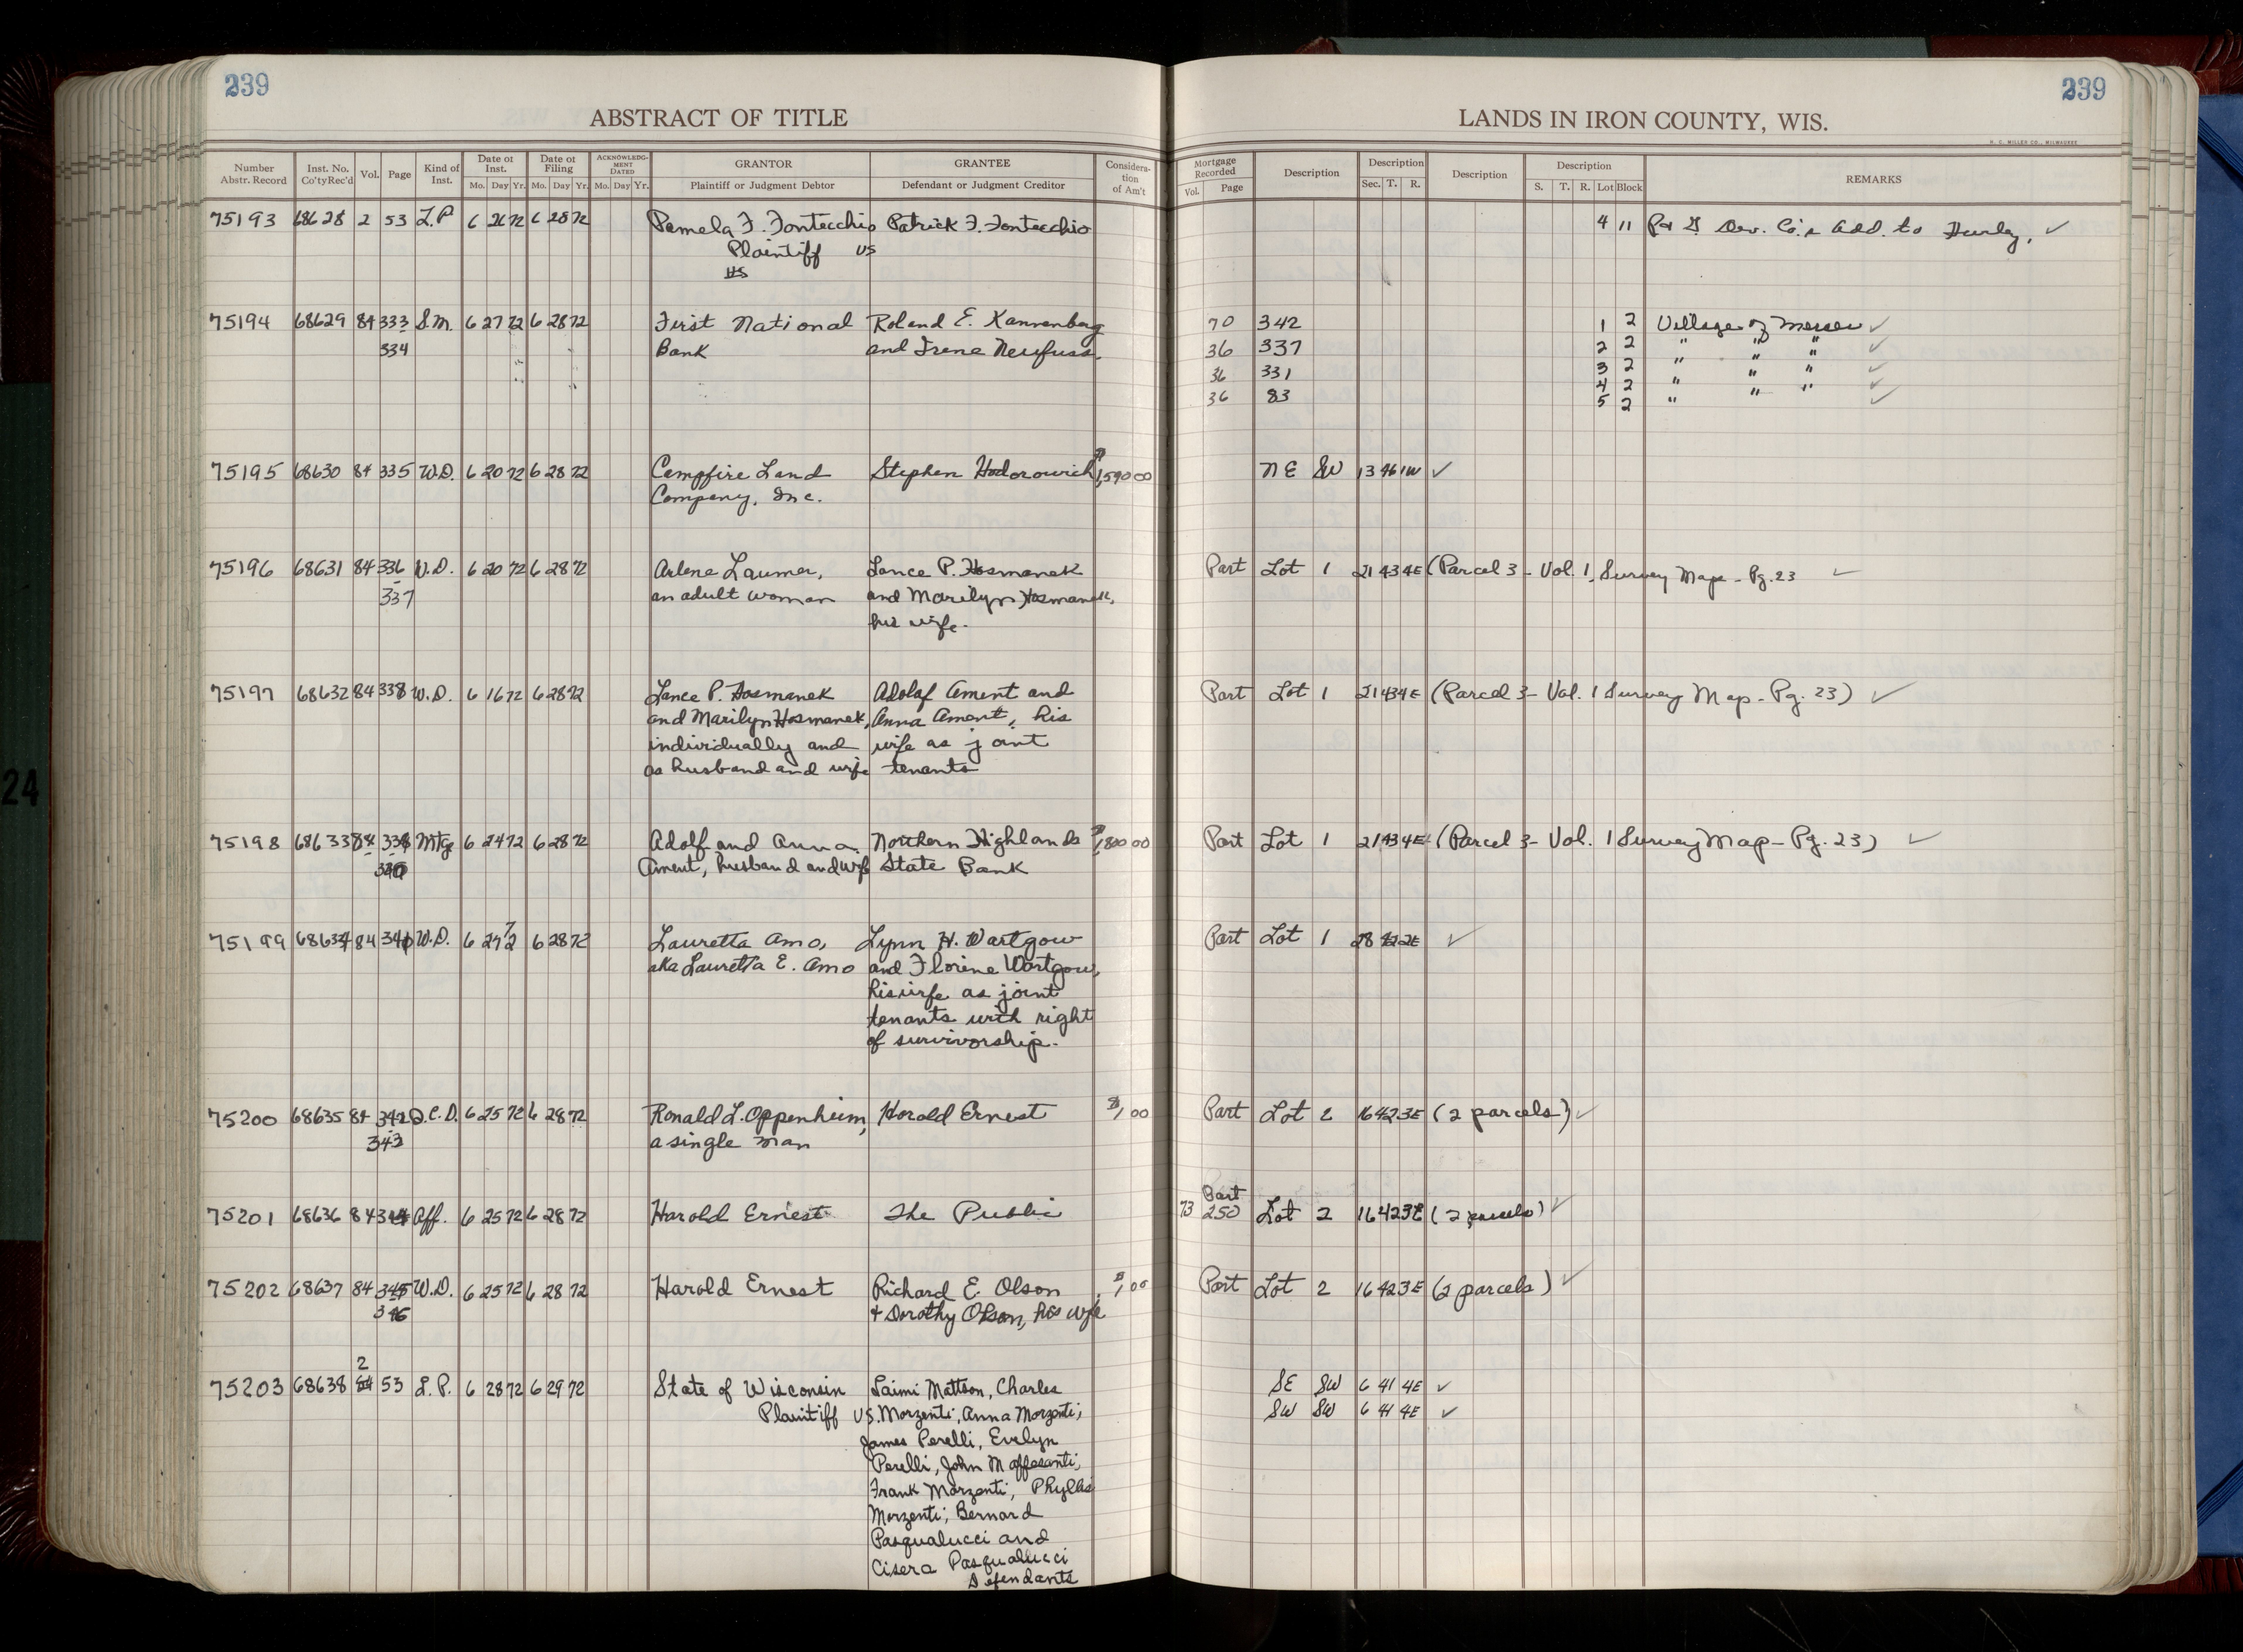 239
239
ABSTRACT OF TITLE
LANDS IN IRON COUNTY, WIS.
H. C. MILLER CO., MILWAUKEE
Number Abstr. Record
Inst. No. Co'ty Rec'd
Vol.
Page
Kind of Inst.
Date of Inst.
Mo. Day Yr.
Date of Filing
Mo. Day Yr.
ACKNOWLEDGMENT DATED
Mo. Day Yr.
GRANTOR
Plaintiff or Judgment Debtor
GRANTEE
Defendant or Judgment Creditor
Consideration of Am't
Mortgage Recorded
Vol. Page
Description
Description
Sec. T. R.
Description
Description
S. T. R. Lot Block
REMARKS
75193 68628 2 53 L.P. 6 26 72 6 28 72 Pamela F. Fontecchio Patrick F. Fontecchio 4 11 Dev. Co.'s Add. to Hurley, ✓
Plaintiff vs
75194 68629 84 333 S.M. 6 27 72 6 28 72 First National Roland E. Kannenberg 70 342 1 2 Village of Mercer ✓
334 Bank and Irene Neufuss. 36 337 2 2 " " " ✓
36 331 3 2 " " " ✓
36 83 4 2 " " " ✓
5 2 " " ✓
75195 68630 84 335 W.D. 6 20 72 6 28 72 Campfire Land Stephen Hodorowich $1,590 00 NE SW 13 46 1W ✓
Company, Inc.
75196 68631 84 336 W.D. 6 20 72 6 28 72 Arlene Laumer, Lance P. Hosmanek Part Lot 1 21 43 4E (Parcel 3 - Vol. 1, Survey Map - Pg. 23 ✓
337 an adult woman and Marilyn Hosmanek,
his wife.
75197 68632 84 338 W.D. 6 16 72 6 28 72 Lance P. Hosmanek Adolaf Ament and Part Lot 1 21 43 4E (Parcel 3 - Vol. 1 Survey Map - Pg. 23) ✓
and Marilyn Hosmanek, Anna Ament, his
individually and wife as joint
as husband and wife tenants
75198 68633 84 Mtg 6 24 72 6 28 72 Adolf and Anna Northern Highlands $1,800 00 Part Lot 1 21 43 4E (Parcel 3 - Vol. 1 Survey Map - Pg. 23) ✓
Ament, husband and wife State Bank
75199 68634 84 341 W.D. 6 27 72 6 28 72 Lauretta Amo, Lynn H. Wartgow Part Lot 1 28 42 2E ✓
aka Lauretta E. Amo and Florine Wartgow,
his wife as joint
tenants with right
of survivorship.
75200 68635 84 342 Q.C.D. 6 25 72 6 28 72 Ronald L. Oppenheim, Harold Ernest $1,00 Part Lot 2 16 42 3E (2 parcels) ✓
343 a single man
75201 68636 84 344 Aff. 6 25 72 6 28 72 Harold Ernest The Public 73 Part 250 Lot 2 16 42 3E (2 parcels) ✓
75202 68637 84 345 W.D. 6 25 72 6 28 72 Harold Ernest Richard E. Olson $1,00 Part Lot 2 16 42 3E (2 parcels) ✓
346 & Dorothy Olson, his wife
75203 68638 2 53 L.P. 6 28 72 6 29 72 State of Wisconsin Laimi Mattson, Charles SE SW 6 41 4E ✓
Plaintiff vs. Morzenti, Anna Morzenti, SW SW 6 41 4E ✓
James Perelli, Evelyn
Perelli, John Maffesanti,
Frank Morzenti, Phyllis
Morzenti; Bernard
Pasqualucci and
Cisera Pasqualucci
Defendants
24